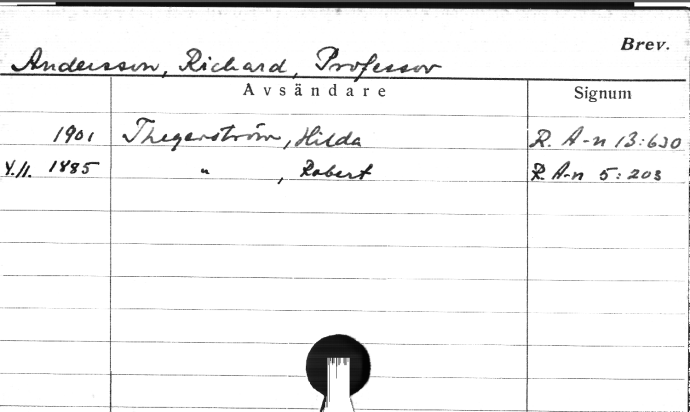 Brev.
Andersson, Richard, Professor
Avsändare Signum
1901 Thegerström, Hilda R. A-n 13:620
4./1. 1885 " , Robert R. A-n 5:203